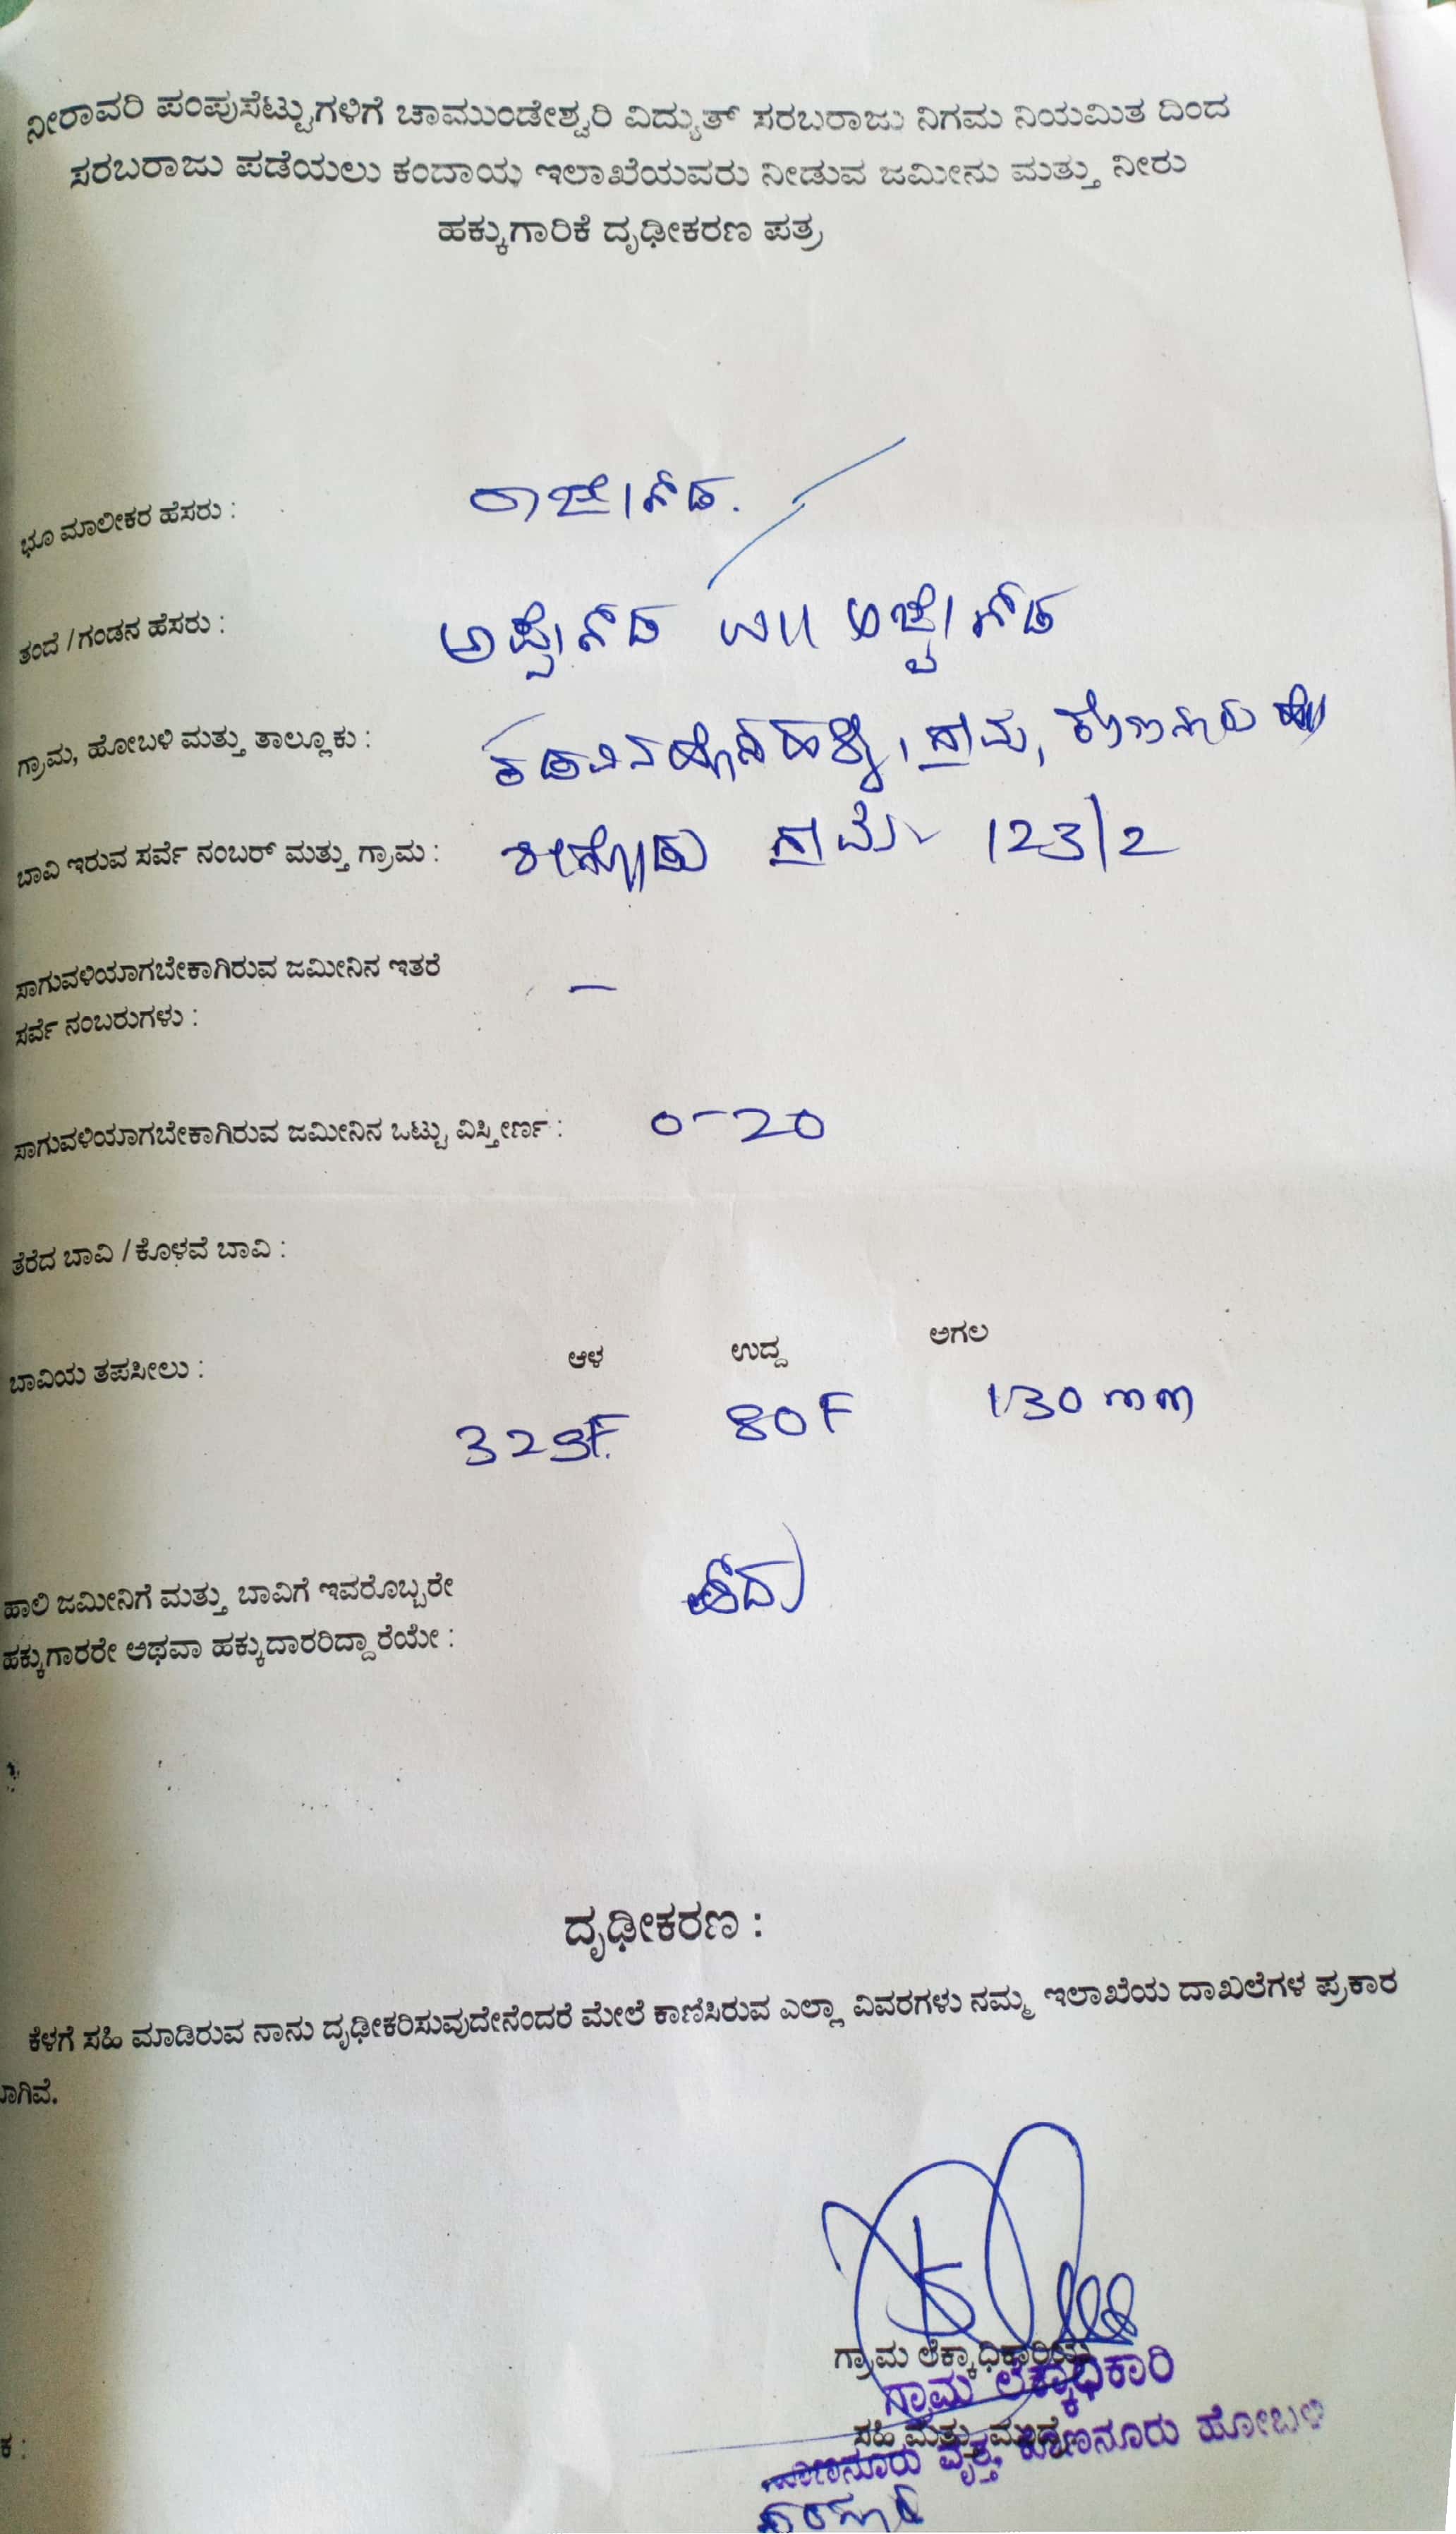 ನೀರಾವರಿ ಪಂಪುಸೆಟ್ಟುಗಳಿಗೆ ಚಾಮುಂಡೇಶ್ವರಿ ವಿದ್ಯುತ್ ಸರಬರಾಜು ನಿಗಮ ನಿಯಮಿತ ದಿಂದ
ಸರಬರಾಜು ಪಡೆಯಲು ಕಂದಾಯ ಇಲಾಖೆಯವರು ನೀಡುವ ಜಮೀನು ಮತ್ತು ನೀರು
ಹಕ್ಕುಗಾರಿಕೆ ದೃಢೀಕರಣ ಪತ್ರ
ಭೂ ಮಾಲೀಕರ ಹೆಸರು : ರಾಜೇಗೌಡ.
ತಂದೆ / ಗಂಡನ ಹೆಸರು : ಅಪ್ಪೇಗೌಡ ಬಿ॥ ಅಜ್ಜೇಗೌಡ
ಗ್ರಾಮ, ಹೋಬಳಿ ಮತ್ತು ತಾಲ್ಲೂಕು : ಗ್ರಾಮ, ಕೊಣನೂರು ಹೋ॥
ಬಾವಿ ಇರುವ ಸರ್ವೆ ನಂಬರ್ ಮತ್ತು ಗ್ರಾಮ : ಗ್ರಾಮ 123/2
ಸಾಗುವಳಿಯಾಗಬೇಕಾಗಿರುವ ಜಮೀನಿನ ಇತರೆ –
ಸರ್ವೆ ನಂಬರುಗಳು :
ಸಾಗುವಳಿಯಾಗಬೇಕಾಗಿರುವ ಜಮೀನಿನ ಒಟ್ಟು ವಿಸ್ತೀರ್ಣ : 0-20
ತೆರೆದ ಬಾವಿ / ಕೊಳವೆ ಬಾವಿ :
ಬಾವಿಯ ತಪಸೀಲು : ಆಳ ಉದ್ದ ಅಗಲ
80F 130 mm
ಹಾಲಿ ಜಮೀನಿಗೆ ಮತ್ತು ಬಾವಿಗೆ ಇವರೊಬ್ಬರೇ ಹೌದು
ಹಕ್ಕುಗಾರರೇ ಅಥವಾ ಹಕ್ಕುದಾರರಿದ್ದಾರೆಯೇ :
ದೃಢೀಕರಣ :
ಕೆಳಗೆ ಸಹಿ ಮಾಡಿರುವ ನಾನು ದೃಢೀಕರಿಸುವುದೇನೆಂದರೆ ಮೇಲೆ ಕಾಣಿಸಿರುವ ಎಲ್ಲಾ ವಿವರಗಳು ನಮ್ಮ ಇಲಾಖೆಯ ದಾಖಲೆಗಳ ಪ್ರಕಾರ
ಾಗಿವೆ.
ಗ್ರಾಮ ಲೆಕ್ಕಾಧಿಕಾರಿಯ
ಗ್ರಾಮ ಲೆಕ್ಕಾಧಿಕಾರಿ
ಸಹಿ ಮತ್ತು ಮುದ್ರೆ
ವೃತ್ತ, ಕೊಣನೂರು ಹೋಬಳಿ
ಕ :